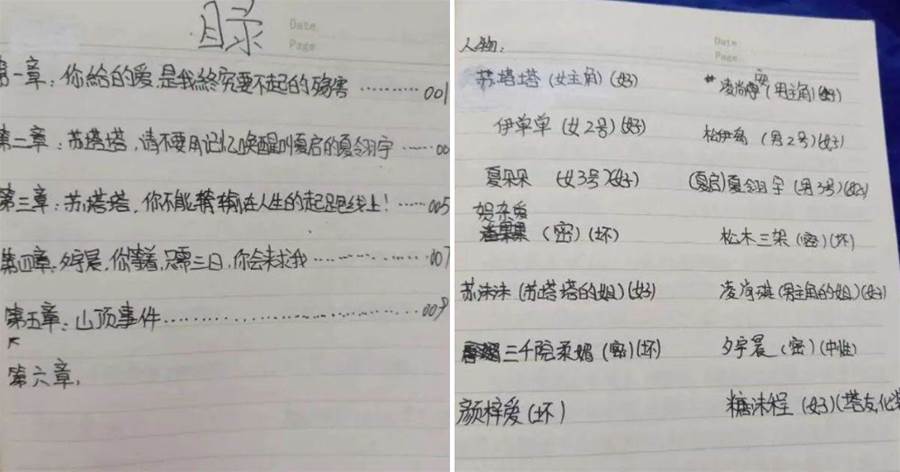 目录
Date
Page
第一章：你給的爱，是我終究要不起的殤害…………001
第二章：苏塔塔，请不要用记忆唤醒叫夏启的夏翎宇……00
第三章：苏塔塔，你不能输在人生的起跑线上！……005
第四章：夕宇晨，你等着，只需三日，你会来求我…………007
第五章：山顶事件…………………………009
第六章：
Date
Page
人物：
苏塔塔（女主角）（好）
凌尚（男主角）（好）
伊单单（女2号）（好）
松伊（男2号）（好）
夏朵朵（女3号）（好）
（夏启）夏翎宇（男3号）（好）
（密）（坏）
松木三架（密）（坏）
苏沫沫（苏塔塔的姐）（好）
凌尚琪（男主角的姐）（好）
三千院柔媚（密）（坏）
夕宇晨（密）（中性）
颜梓爱（坏）
糖沫程（好）（塔友，化